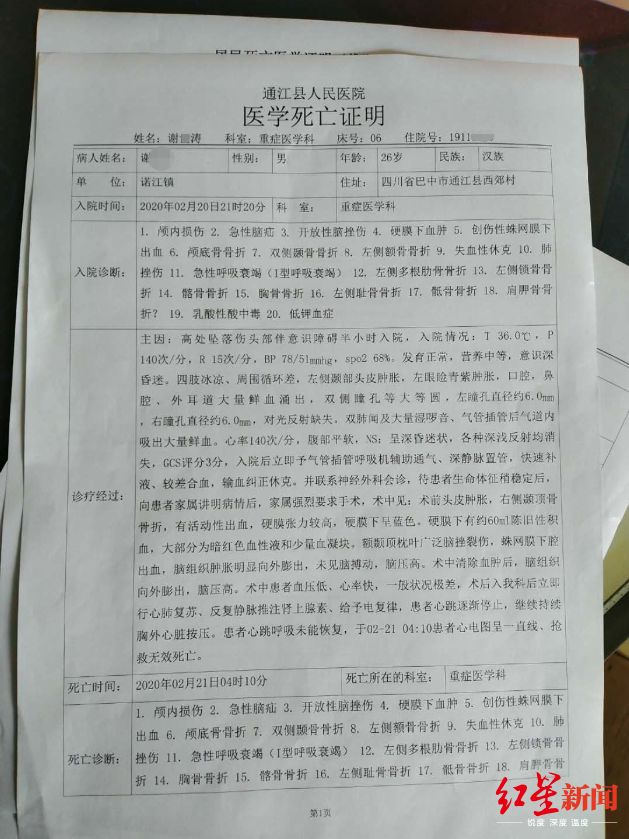 通江县人民医院
医学死亡证明
姓名：谢 涛 科室：重症医学科 床号：06 住院号：1911
病人姓名： 谢 性别： 男 年龄： 26岁 民族： 汉族
单 位： 诺江镇 住址： 四川省巴中市通江县西郊村
入院时间： 2020年02月20日21时20分 科 室： 重症医学科
入院诊断：
1. 颅内损伤 2. 急性脑疝 3. 开放性脑挫伤 4. 硬膜下血肿 5. 创伤性蛛网膜下
出血 6. 颅底骨骨折 7. 双侧颞骨骨折 8. 左侧额骨骨折 9. 失血性休克 10. 肺
挫伤 11. 急性呼吸衰竭（I型呼吸衰竭） 12. 左侧多根肋骨骨折 13. 左侧锁骨骨
折 14. 髂骨骨折 15. 胸骨骨折 16. 左侧耻骨骨折 17. 骶骨骨折 18. 肩胛骨骨
折？ 19. 乳酸性酸中毒 20. 低钾血症
诊疗经过：
主因：高处坠落伤头部伴意识障碍半小时入院，入院情况：T 36.0℃，P
140次/分，R 15次/分，BP 78/51mmhg，spo2 68%。发育正常，营养中等，意识深
昏迷。四肢冰凉、周围循环差，左侧颞部头皮肿胀，左眼睑青紫肿胀，口腔，鼻
腔、外耳道大量鲜血涌出，双侧瞳孔等大等圆，左瞳孔直径约6.0mm
，右瞳孔直径约6.0mm，对光反射缺失，双肺闻及大量湿啰音、气管插管后气道内
吸出大量鲜血。心率140次/分，腹部平软，NS：呈深昏迷状，各种深浅反射均消
失，GCS评分3分，入院后立即予气管插管呼吸机辅助通气、深静脉置管，快速补
液、较差合血，输血纠正休克。并联系神经外科会诊，待患者生命体征稍稳定后，
向患者家属讲明病情后，家属强烈要求手术，术中见：术前头皮肿胀，右侧颞顶骨
骨折，有活动性出血，硬膜张力较高，硬膜下呈蓝色。硬膜下有约60ml陈旧性积
血，大部分为暗红色血性液和少量血凝块。额颞顶枕叶广泛脑挫裂伤，蛛网膜下腔
出血，脑组织肿胀明显向外膨出，未见脑搏动，脑压高。术中清除血肿后，脑组织
向外膨出，脑压高。术中患者血压低、心率快，一般状况极差，术后入我科后立即
行心肺复苏、反复静脉推注肾上腺素、给予电复律，患者心跳逐渐停止，继续持续
胸外心脏按压。患者心跳呼吸未能恢复，于02-21 04:10患者心电图呈一直线、抢
救无效死亡。
死亡时间： 2020年02月21日04时10分 死亡所在的科室： 重症医学科
死亡诊断：
1. 颅内损伤 2. 急性脑疝 3. 开放性脑挫伤 4. 硬膜下血肿 5. 创伤性蛛网膜下
出血 6. 颅底骨骨折 7. 双侧颞骨骨折 8. 左侧额骨骨折 9. 失血性休克 10. 肺
挫伤 11. 急性呼吸衰竭（I型呼吸衰竭） 12. 左侧多根肋骨骨折 13. 左侧锁骨骨
折 14. 胸骨骨折 15. 髂骨骨折 16. 左侧耻骨骨折 17. 骶骨骨折 18. 肩胛骨骨
第1页
红星新闻
锐度 深度 温度